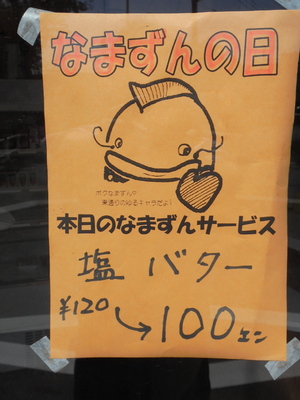 なまずんの日
ボクなまずん♡
東通りのゆるキャラだよ!
本日のなまずんサービス
塩 バター
¥120
100エン